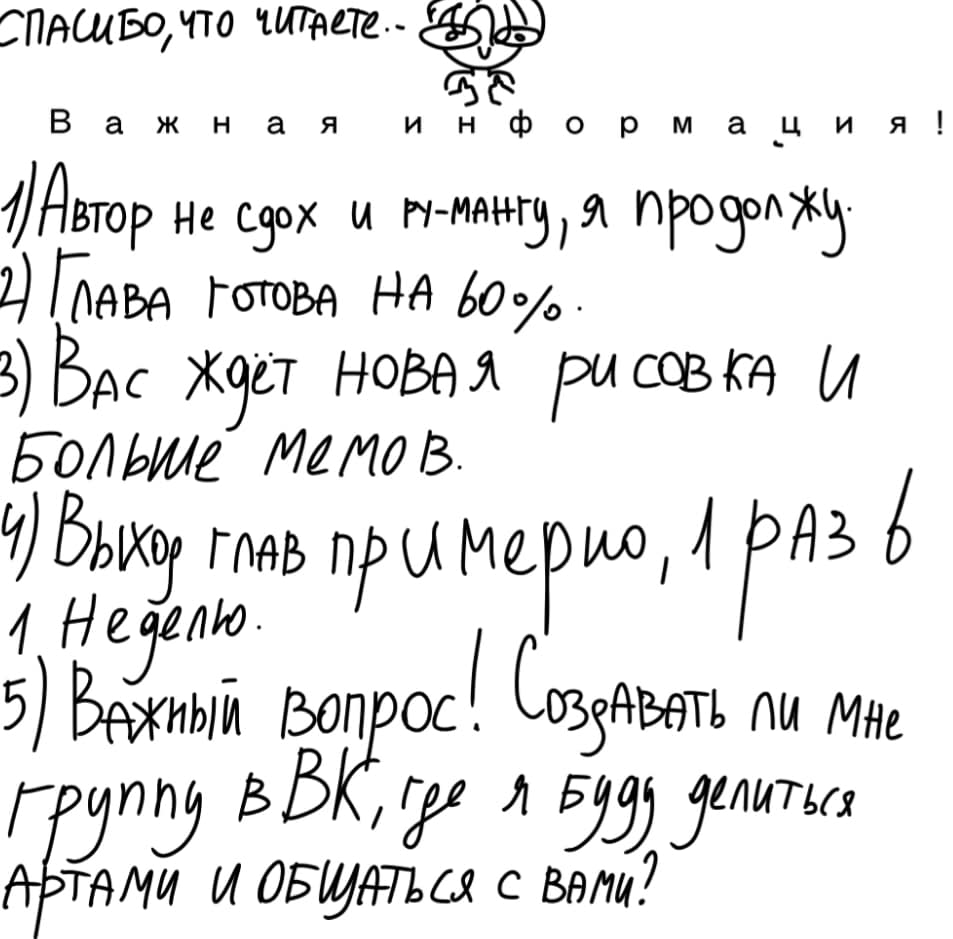 СПАСИБО, ЧТО ЧИТАЕТЕ..
Важная информация!
1) Автор не сдох и ру-мангу, я продолжу.
2) Глава готова на 60%.
3) Вас ждёт новая рисовка и
больше мемов.
4) Выход глав примерно, 1 раз в
1 неделю.
5) Важный вопрос! Создавать ли мне
группу в ВК, где я буду делиться
артами и общаться с вами?